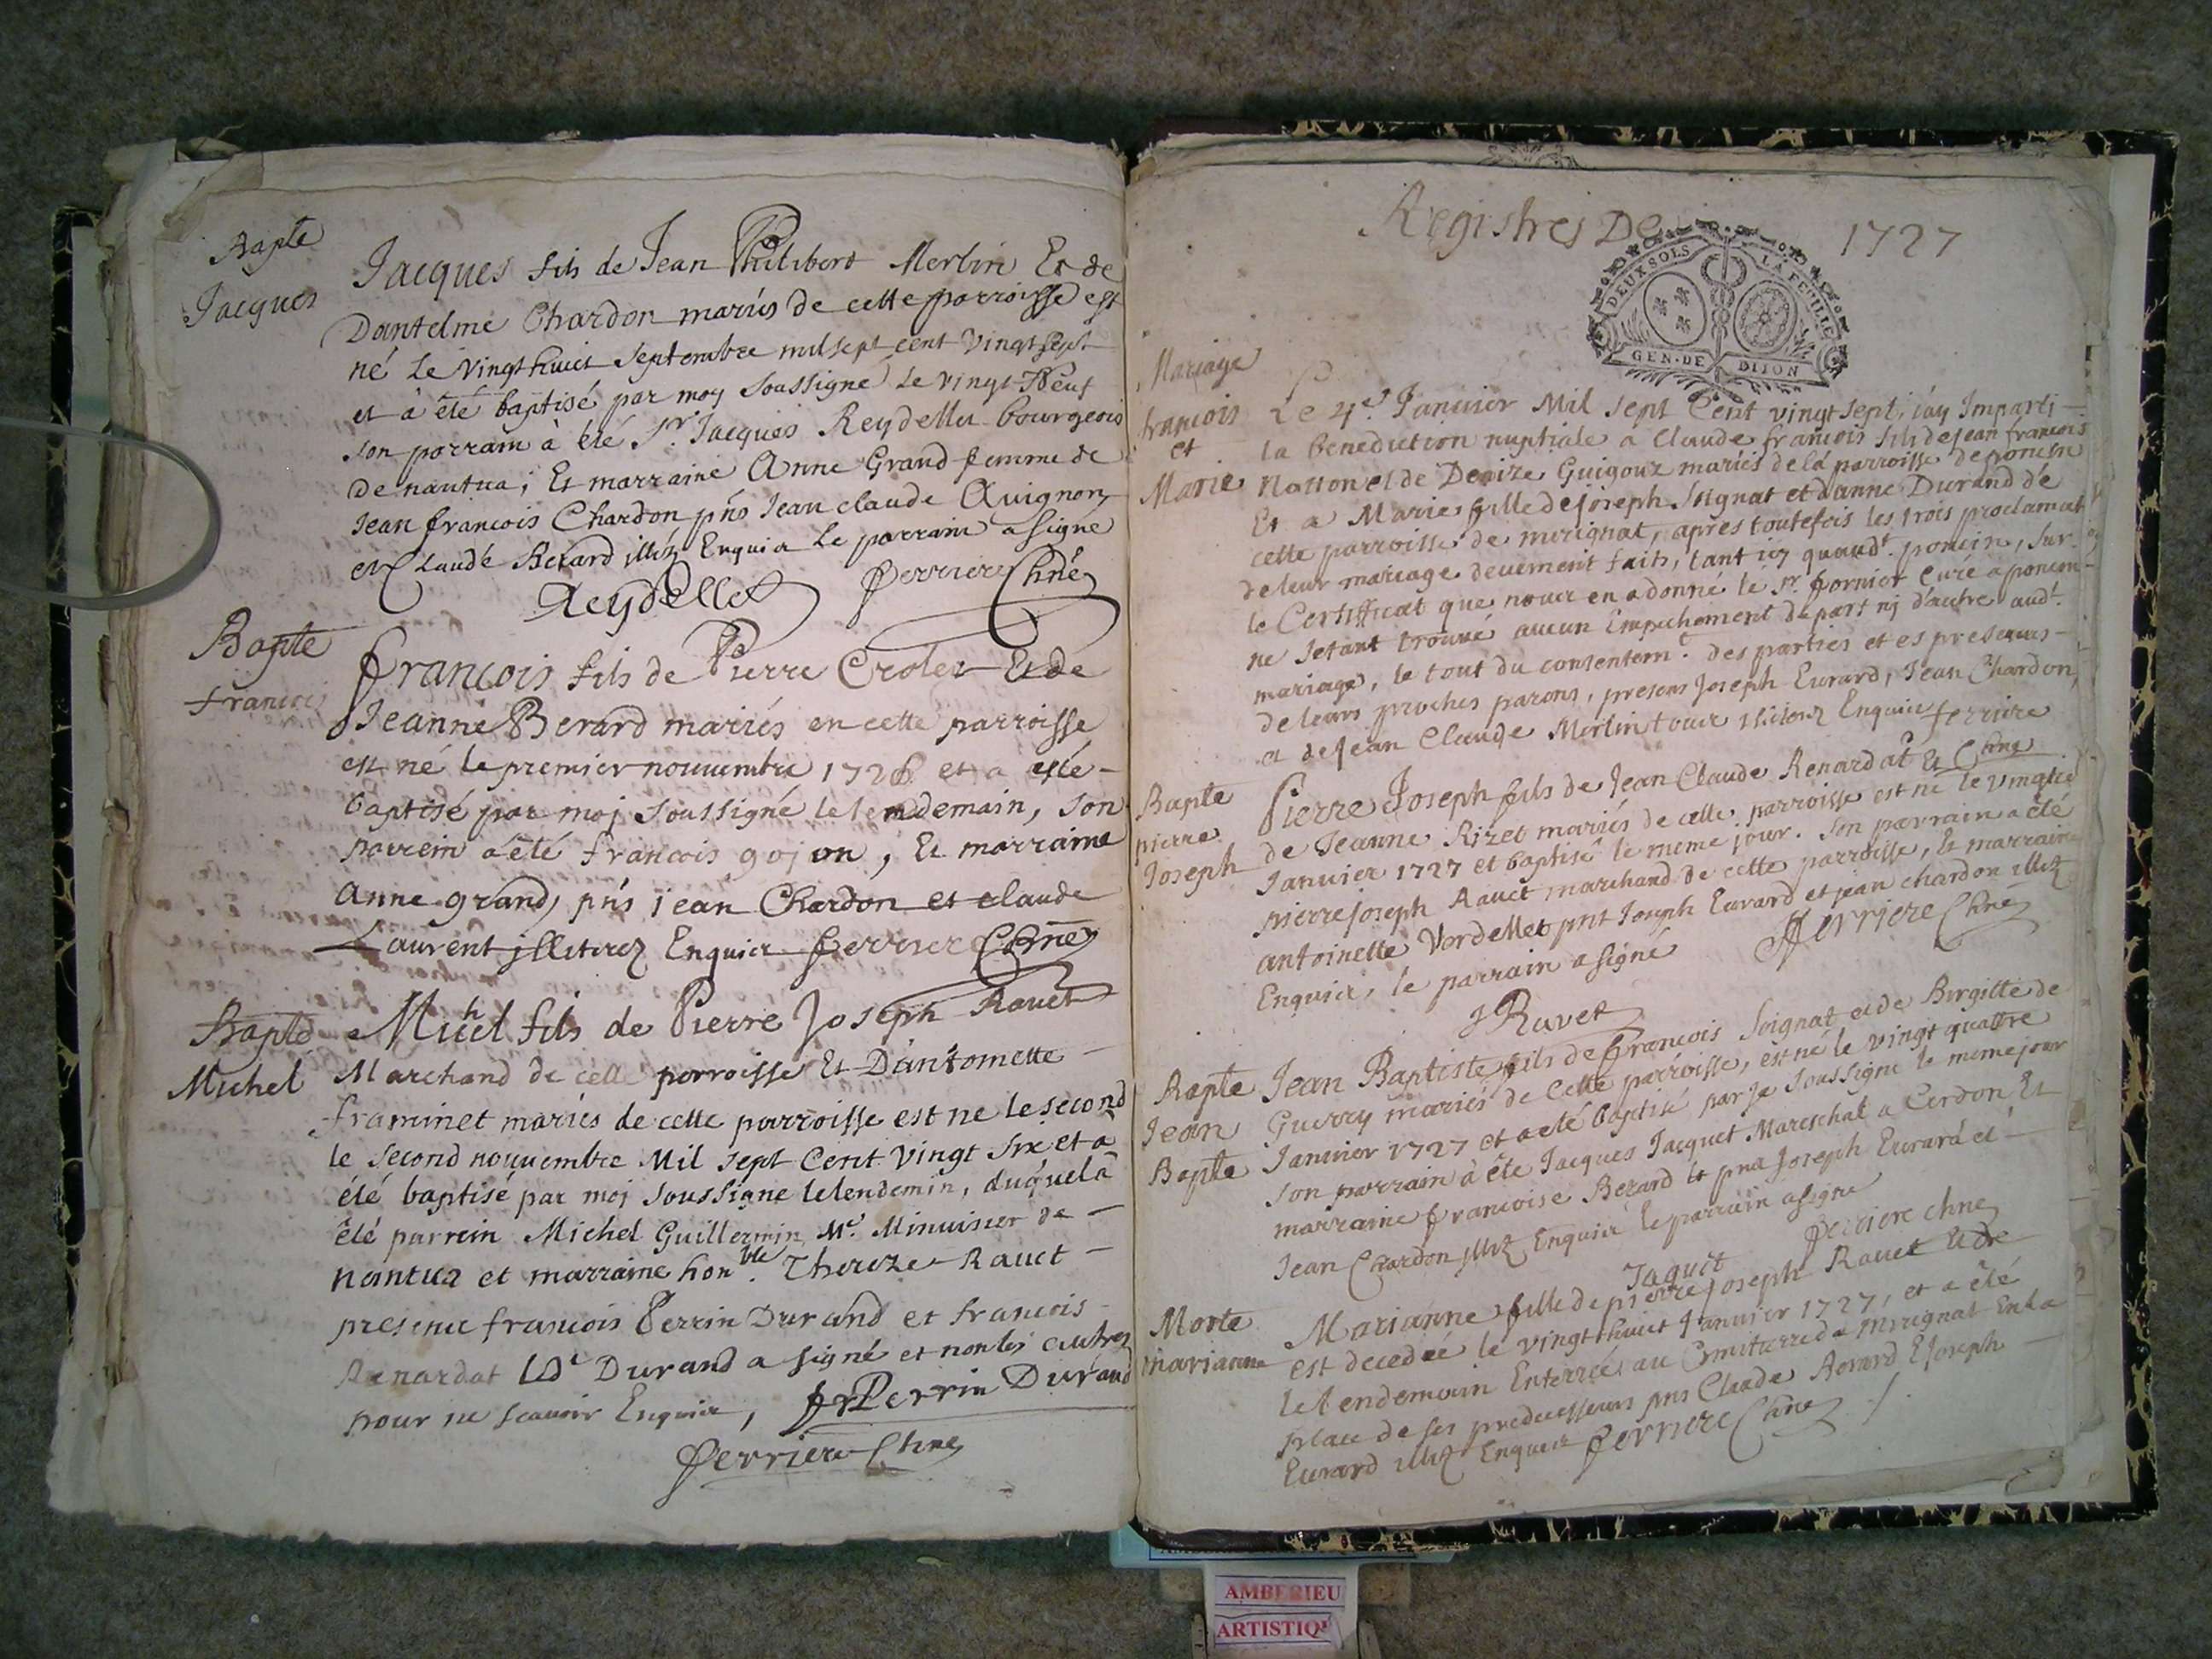 Bapte
Jacques
Jacques fils de Jean Philibert Merlin Et de
Dantelme Chardon mariés de cette parroisse est
né Le Vingt huict Septembre mil sept cent Vingt sept
et à été baptisé par moy soussigné le vingt Neuf
son parrain à été Sr. Jacques Reydellet bourgeois
de nantua; Et marraine Anne Grand femme de
Jean francois Chardon pñs Jean claude Avignon
et Claude Berard illitz Enquis Le parrain a signé
Reydellet Perriere Chñe
Bapte
francois
francois fils de Pierre Crolet Et de
Jeanne Berard mariés en cette parroisse
est né le premier nouvembre 1726 et a esté
baptisé par moj soussigné le lendemain, son
parrein a été francois gojon, Et marraine
anne grand, pñs jean Chardon et claude
Laurent illiterez Enquis perriere Chñe
Bapte
Michel
Michel fils de Pierre Joseph Ravet
Marchand de cette parroisse Et Dantoinette
framinet mariés de cette parroisse est ne le second
le second nouvembre Mil sept Cent Vingt Six et a
été baptisé par moj soussigne le lendemin, duquel a
été parrein Michel Guillermin Me. Minuisier de
nantua et marraine honble. Thereze Ravet
presence francois Perrin Durand et francois
Renardat Ldt Durand a signé et non les autres
pour ne scavoir Enquis, fr Perrin Durand
Perriere Chne
Registres De 1727
DEUX SOLS LA FEUILLE
GEN. DE DIJON
Mariage
francois
et
Marie
Le 4e. Janvier Mil sept Cent vingt sept, jay Imparti
la benediction nuptiale a Claude francois fils de jean francois
Nattonel de Denize Guigouz mariés de la parroisse de poncin
Et a Marie fille de joseph Soignat et d'anne Durand de
cette parroisse de merignat, apres toutefois les trois proclamat
de leur mariage deuement faits, tant icy quaudt. poncin, sur
le Certifficat que nour en a donné le Sr. fornier Curé a poncin
ne setant trouvé aucun Empechement de part nj d'autre audt.
mariage, le tout du consentemt. des parties et es presences
de leurs proches parens, presens Joseph Eurard, Jean Chardon,
et de Jean Claude Merlin tour Enquis ferriere
Chne
Bapte
pierre
Joseph
Pierre Joseph fils de Jean Claude Renardat Et
de Jeanne Rizet mariés de cette parroisse est né le vingtie
Janvier 1727 et baptisé le meme jour. Son parrain a été
pierre joseph Ravet marchand de cette parroisse, Et marraine
antoinette Verdellet pnt Joseph Eurard et jean chardon illitz
Enquis, le parrain a signé Perriere Chne
J Ravet
Bapte
Jean
Bapte
Jean Baptiste fils de francois Soignat et de Birgitte de
Guerry mariés de Cette parroisse, est né le vingt quattre
Janvier 1727 et a eté baptisé par Je soussigné le meme jour
son parrain à éte Jacques Jacquet Mareschal a Cerdon Et
marraine francoise Berard Et pnt Joseph Eurard et
Jean Chardon illitz Enquis le parrain a signe
Jaquit perriere chne
Morte
marianne
Marianne fille de pierre Joseph Ravet Et de
est decedée le vingt huict Janvier 1727, et a été
le lendemain Enterrée au Cimitierre de Merignat En la
place de ses predecesseurs pns Claude Berard Et Joseph
Eurard illitz Enquis perriere Chne
AMBERIEU
ARTISTIQU